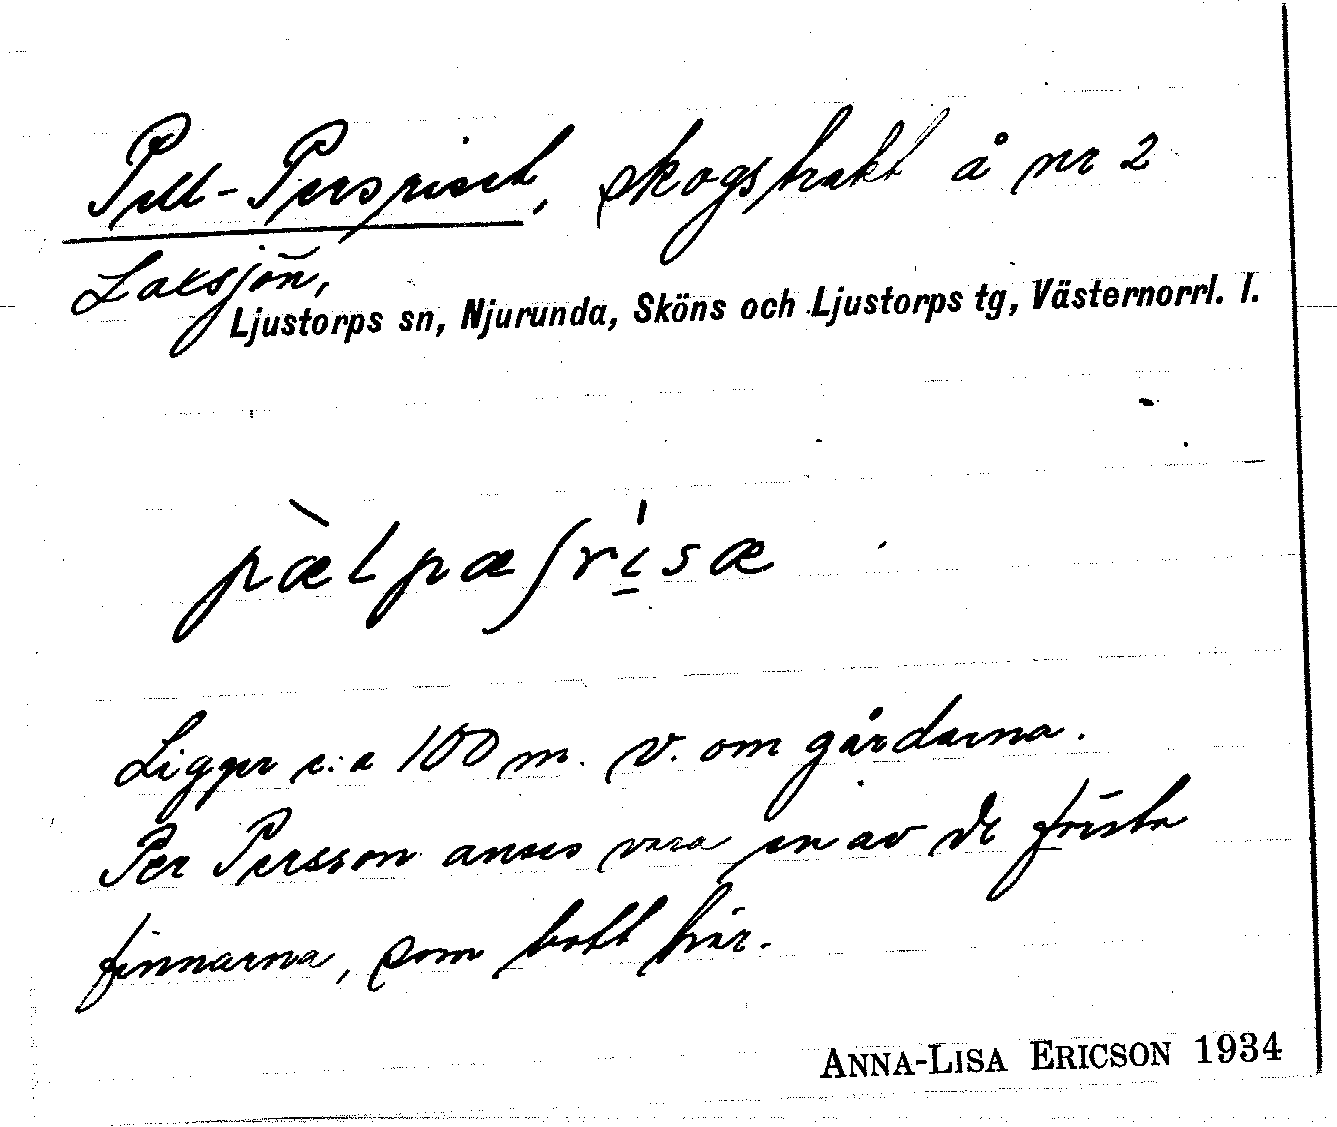 Pell-Persriset, skogstrakt å nr 2
Laksjön,
Ljustorps sn, Njurunda, Sköns och Ljustorps tg, Västernorrl. l.
pæ̀lpæʃrɩ̠́sæ
Ligger c:a 100 m. v. om gårdarna.
Per Persson anses vara en av de första
finnarna, som bott här.
ANNA-LISA ERICSON 1934